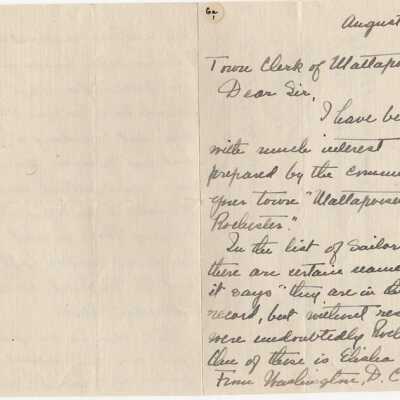 6a
August
Town Clerk of Mattapois
Dear Sir,
I have be
with much interest
prepared by the commi
your town "Mattapoise
Rochester."
In the list of Sailor
there are certain name
it says "they are in
record, but without res
were undoubtedly Roc
One of these is Elisha
From Washington, D. C